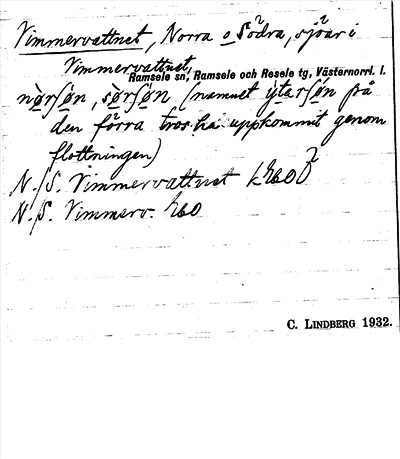 Vimmervattnet, Norra o Södra, sjöar i
Vimmervattnet,
Ramsele sn, Ramsele och Resele tg, Västernorrl. l.
nø̱rsʃø̱n, sø̱rsʃø̱n (namnet ýtarsʃø̱n på
den förra tros ha uppkommit genom
flottningen)
N./S. Vimmervattnet k.
N./S. Vimmerv.
C. LINDBERG 1932.